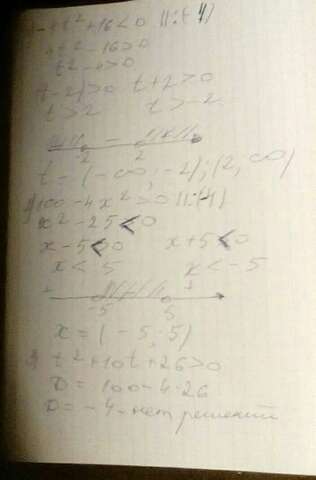 -4t² + 16 < 0 ||:(-4)
t² - 16 > 0
t² - 4 > 0
t - 2 > 0 t + 2 > 0
t > 2 t > -2
-2 2
t = (-∞, -2); (2, ∞)
100 - 4x² > 0 ||:(4)
x² - 25 < 0
x - 5 < 0 x + 5 < 0
x < -5 x < -5
+ +
-5 5
x = (-5; 5)
t² + 10t + 26 > 0
D = 100 - 4·26
D = -4 - нет решений